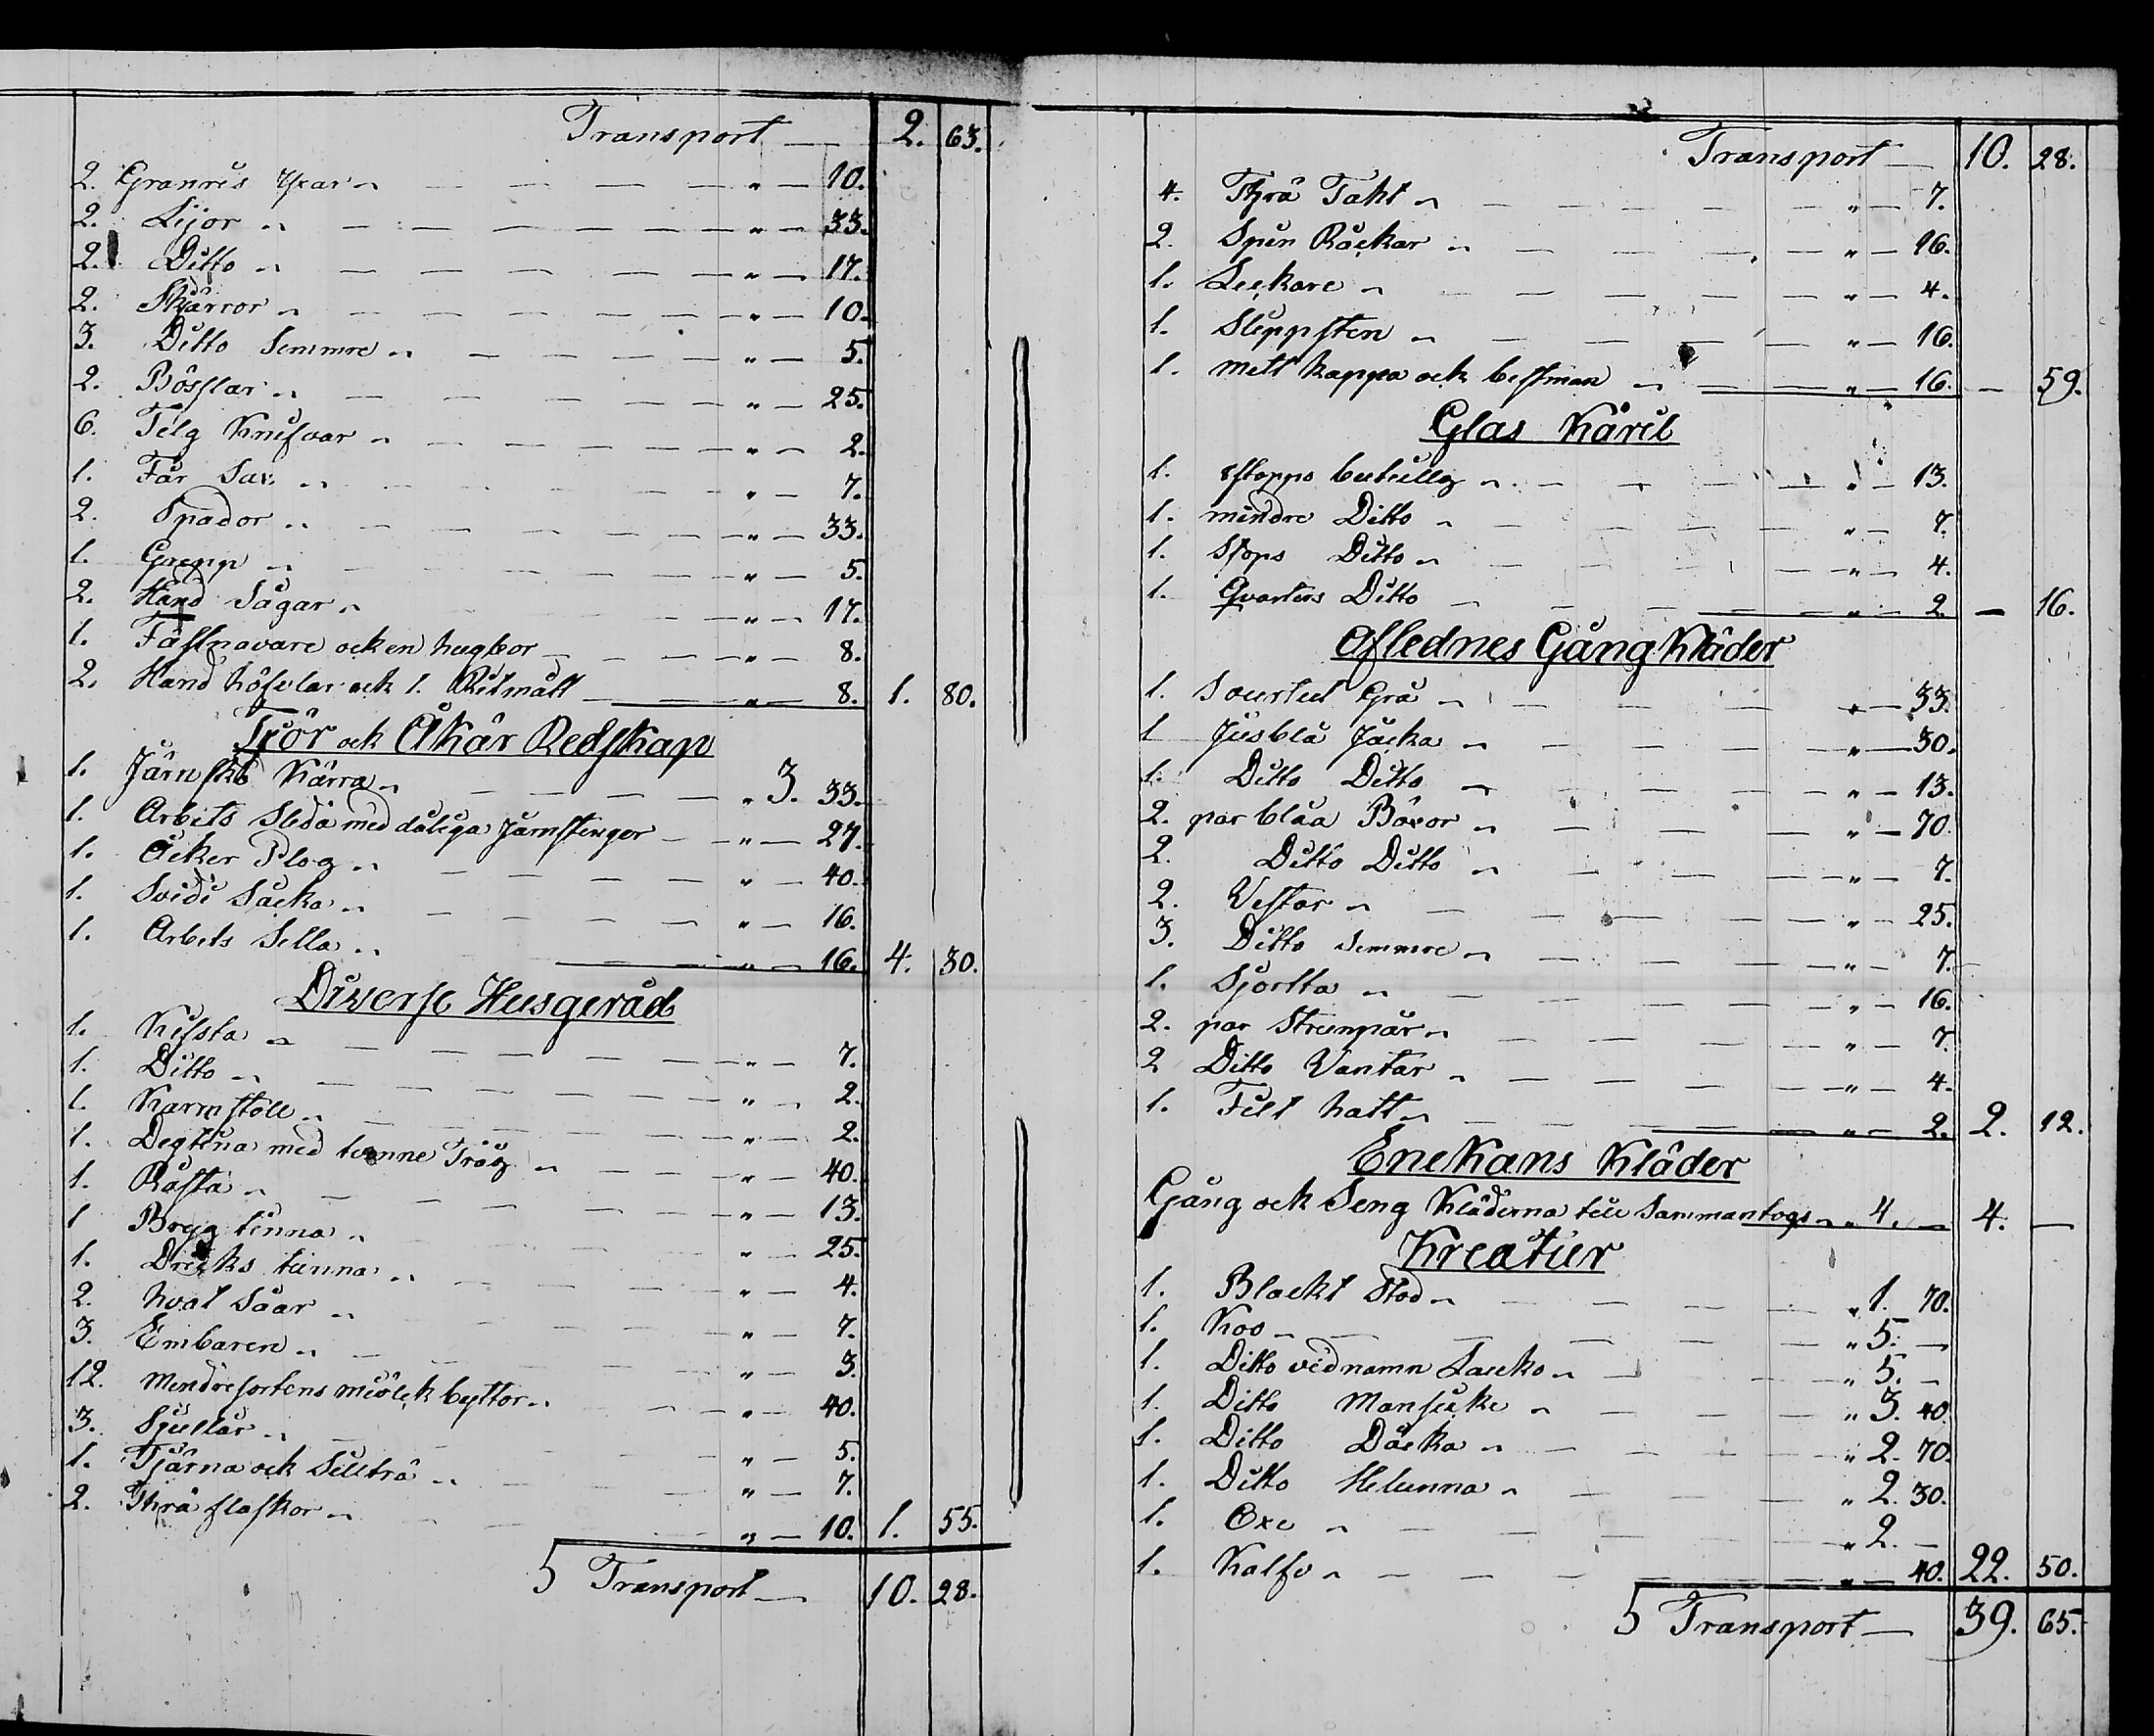 Transport — 2. 63.
2. Granris Yxar „ — 10.
2. Lijor „ — 33.
2. Ditto „ — 17.
2. Skjärror „ — 10.
3. Ditto Semmre „ — 5.
2. Bösslar „ — 25.
6. Telg Knifvar „ — 2.
1. Får Sax „ — 7.
2. Spador „ — 33.
1. Grepp „ — 5.
2. Hand Sågar „ — 17.
1. Fåslnavare ock en hugbor „ — 8.
2. Hand höfvlar ock 1. Ritmått „ — 8. 1. 80.
Kör ock Åkår Redskap
1. Järnskodd Kärra „ 3. 33.
1. Arbits Slida med dåliga Järnstenger „ — 27.
1. Åcker Plog „ — 40.
1. Svidi Säcka „ — 16.
1. Arbets Sella „ — 16. 4. 30.
Diverse Husgeråd
1. Kifsta „ — 7.
1. Ditto „ — 2.
1. Karmstoll „ — 2.
1. Degtina med tvenne Tråg „ — 40.
1. Råsta „ — 13.
1 Bryg tinna „ — 25.
1. Dricks tunna „ — 4.
2. hval Såar „ — 7.
3. Embaren „ — 3.
12. Mindre sortens miölck byttor „ — 40.
3. Sjullar „ — 5.
1. Tjärna ock Silltrå „ — 7.
2. Thrä flaskor „ — 10. 1. 55.
5 Transport — 10. 28.
Transport — 10. 28.
4. Thrä Taht „ — 7.
2. Spin Råckar „ — 16.
1. Leckare „ — 4.
1. Sleppsten „ — 16.
1. mått kappa ock bessman „ — 16. — 59.
Glas Käril
1. 8stopps butullg „ — 13.
1. mindre Ditto „ — 7.
1. Stops Ditto „ — 4.
1. Qvarters Ditto „ — 2. — 16.
Aflednes Gång Kläder
1. Sourtut Grå „ — 33.
1 Jusblå Jäcka „ — 30.
1. Ditto Ditto „ — 13.
2. par blåa Böxor „ — 70.
2. Ditto Ditto „ — 7.
2. Vestar „ — 25.
3. Ditto Semmre „ — 7.
1. Sjortta „ — 16.
2. par Strumpår „ — 7.
2 Ditto Vantar „ — 4.
1. Filt hatt „ — 2. 2. 12.
Enekans Kläder
Gång ock Seng Kläderna till Sammantogs „ 4. — 4. —
Kreatur
1. Blackt Stod „ 1. 70.
1. Koo „ 5. —
1. Ditto vid namn „ 5. —
1. Ditto „ 3. 40.
1. Ditto Däcka „ 2. 70.
1. Ditto Helunna „ 2. 30.
1. Oxe „ 2. —
1. Kalfv „ — 40. 22. 50.
5 Transport — 39. 65.